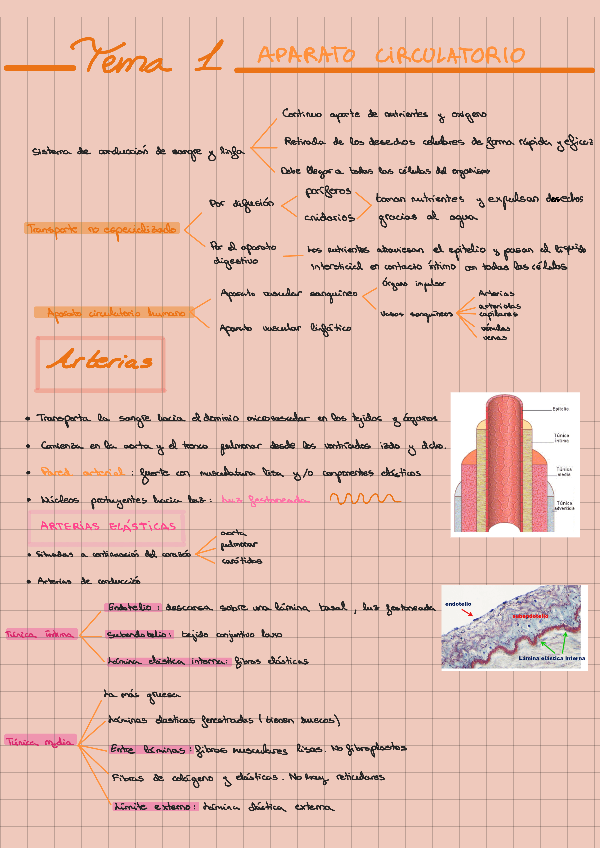 Tema 1 APARATO CIRCULATORIO
Continuo aporte de nutrientes y oxígeno
Sistema de conducción de sangre y linfa
Retirada de los desechos celulares de forma rápida y eficaz
Debe llegar a todas las células del organismo
Transporte no especializado
Por difusión
poríferos
cnidarios
toman nutrientes y expulsan desechos
gracias al agua
Por el aparato
digestivo
Los nutrientes atraviesan el epitelio y pasan al líquido
intersticial en contacto íntimo con todas las células
Aparato circulatorio humano
Aparato vascular sanguíneo
Órgano impulsor
Vasos sanguíneos
Arterias
arteriolas
capilares
vénulas
venas
Aparato vascular linfático
Arterias
• Transporta la sangre hacia el dominio microvascular en los tejidos y órganos
• Comienza en la aorta y el tronco pulmonar desde los ventrículos izdo y dcho.
• Pared arterial: fuerte con musculatura lisa y/o componentes elásticos
• Núcleos protuyentes hacia luz: luz festoneada
Epitelio
Túnica
íntima
Túnica
media
Túnica
adventicia
ARTERIAS ELÁSTICAS
• Situadas a continuación del corazón
aorta
pulmonar
carótidas
• Arterias de conducción
Túnica íntima
Endotelio: descansa sobre una lámina basal, luz festoneada
Subendotelio: tejido conjuntivo laxo
Lámina elástica interna: fibras elásticas
endotelio
subendotelio
Lámina elástica interna
Túnica media
La más gruesa
Láminas elásticas fenestradas (tienen huecos)
Entre láminas: fibras musculares lisas. No fibroplastos
Fibras de colágeno y elásticas. No hay reticulares
Límite externo: Lámina elástica externa